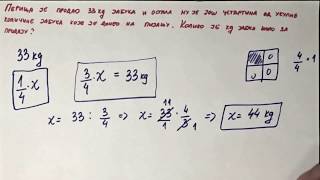 Перица је продао 33 kg јабука и остала му је још четвртина од укупне
количине јабука које је донео на пијацу. Колико је kg јабука имао за
продају?
33 kg
1/4 · x
3/4 · x = 33 kg
0
0 0
4/4 · 1
x = 33 : 3/4 => x = 33/1 · 4/3 => x = 44 kg
11
1